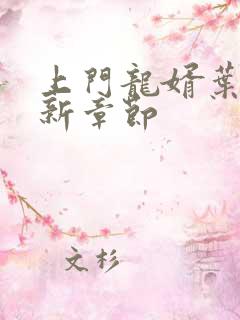 上門龍婿葉
新章節
文杉